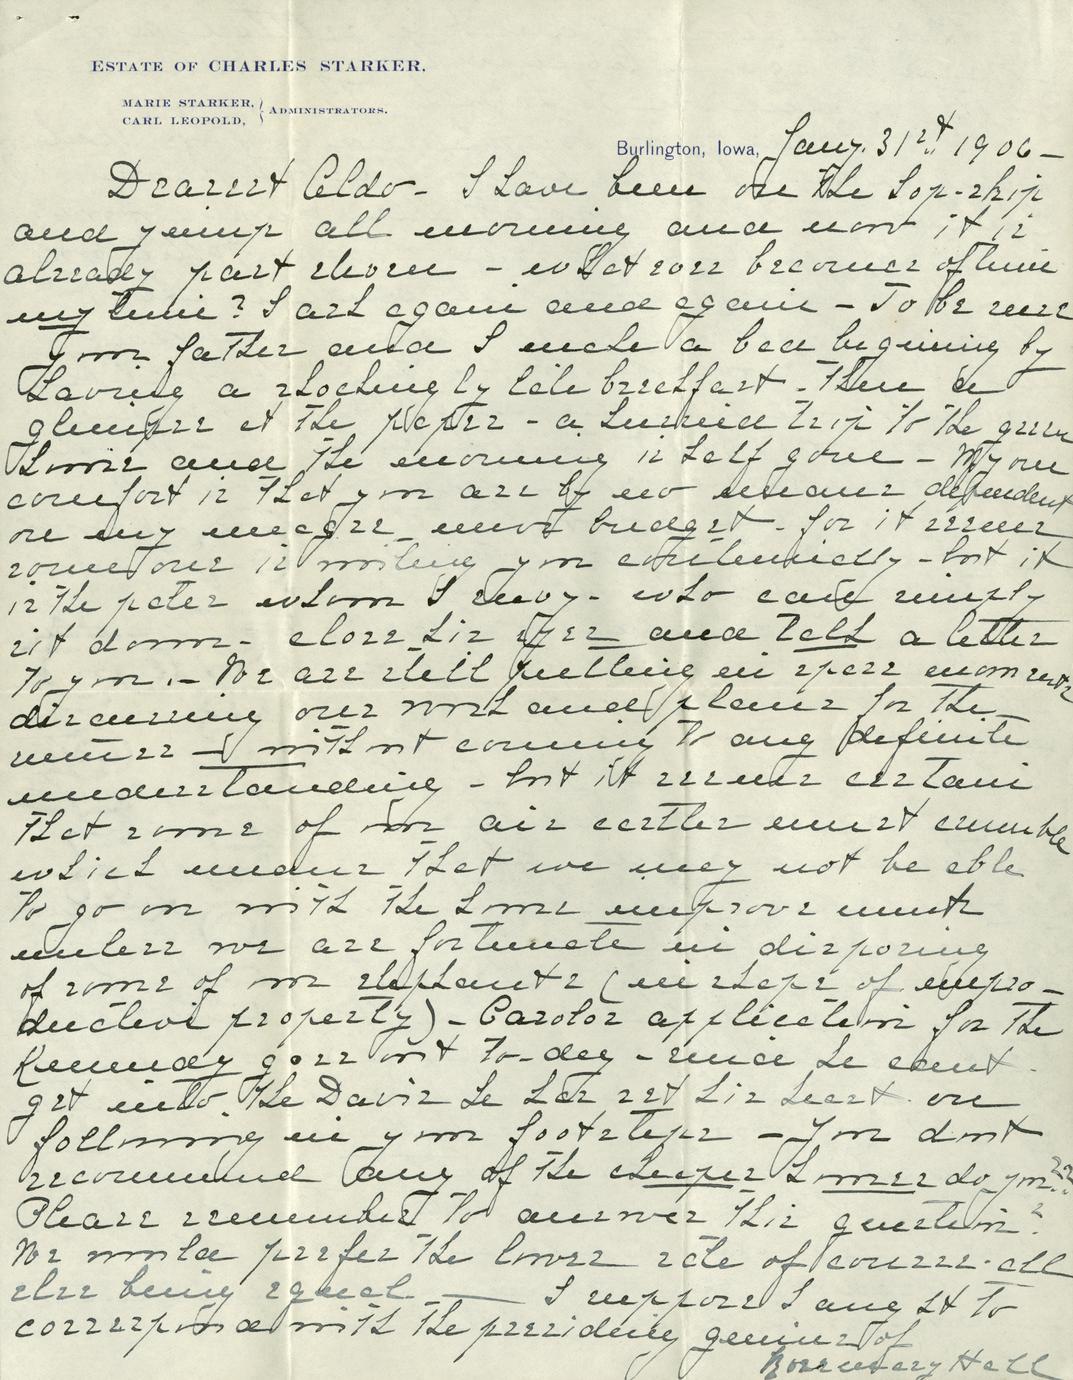 ESTATE OF CHARLES STARKER.
MARIE STARKER,
CARL LEOPOLD,
ADMINISTRATORS.
Burlington, Iowa, Jany. 31st 1906 —
Dearest Aldo - I have been on the hop-skip
and jump all morning and now it is
already past eleven - what ever becomes of time
my time? I ask again and again - To be sure
your father and I made a bad begining by
having a shockingly late breakfast - Then a
glimpse at the paper - a hurried trip to the green
house and the morning is half gone - My one
comfort is that you are by no means dependent
on my meagre news budget - for it seems
some one is writing you continually - but it
is the pater whom I envy - who can simply
sit down - close his eyes and talk a letter
to you. - We are still putting in spare moments
discussing our work and plans for the
summer - without coming to any definite
understanding - but it seems certain
that some of our air castles must crumble
which means that we may not be able
to go on with the home improvements
unless we are fortunate in disposing
of some of our elephants (in shape of unpro-
ductive property) - Carolos application for the
Kennedy goes out to-day - since he cant
get into the Davis he has set his heart on
following in your footsteps - You dont
recommend any of the cheaper homes do you??
Please remember to answer this question?
We would prefer the lower rate of course - all
else being equal — I suppose I ought to
correspond with the presiding genius of
Rosemary Hall